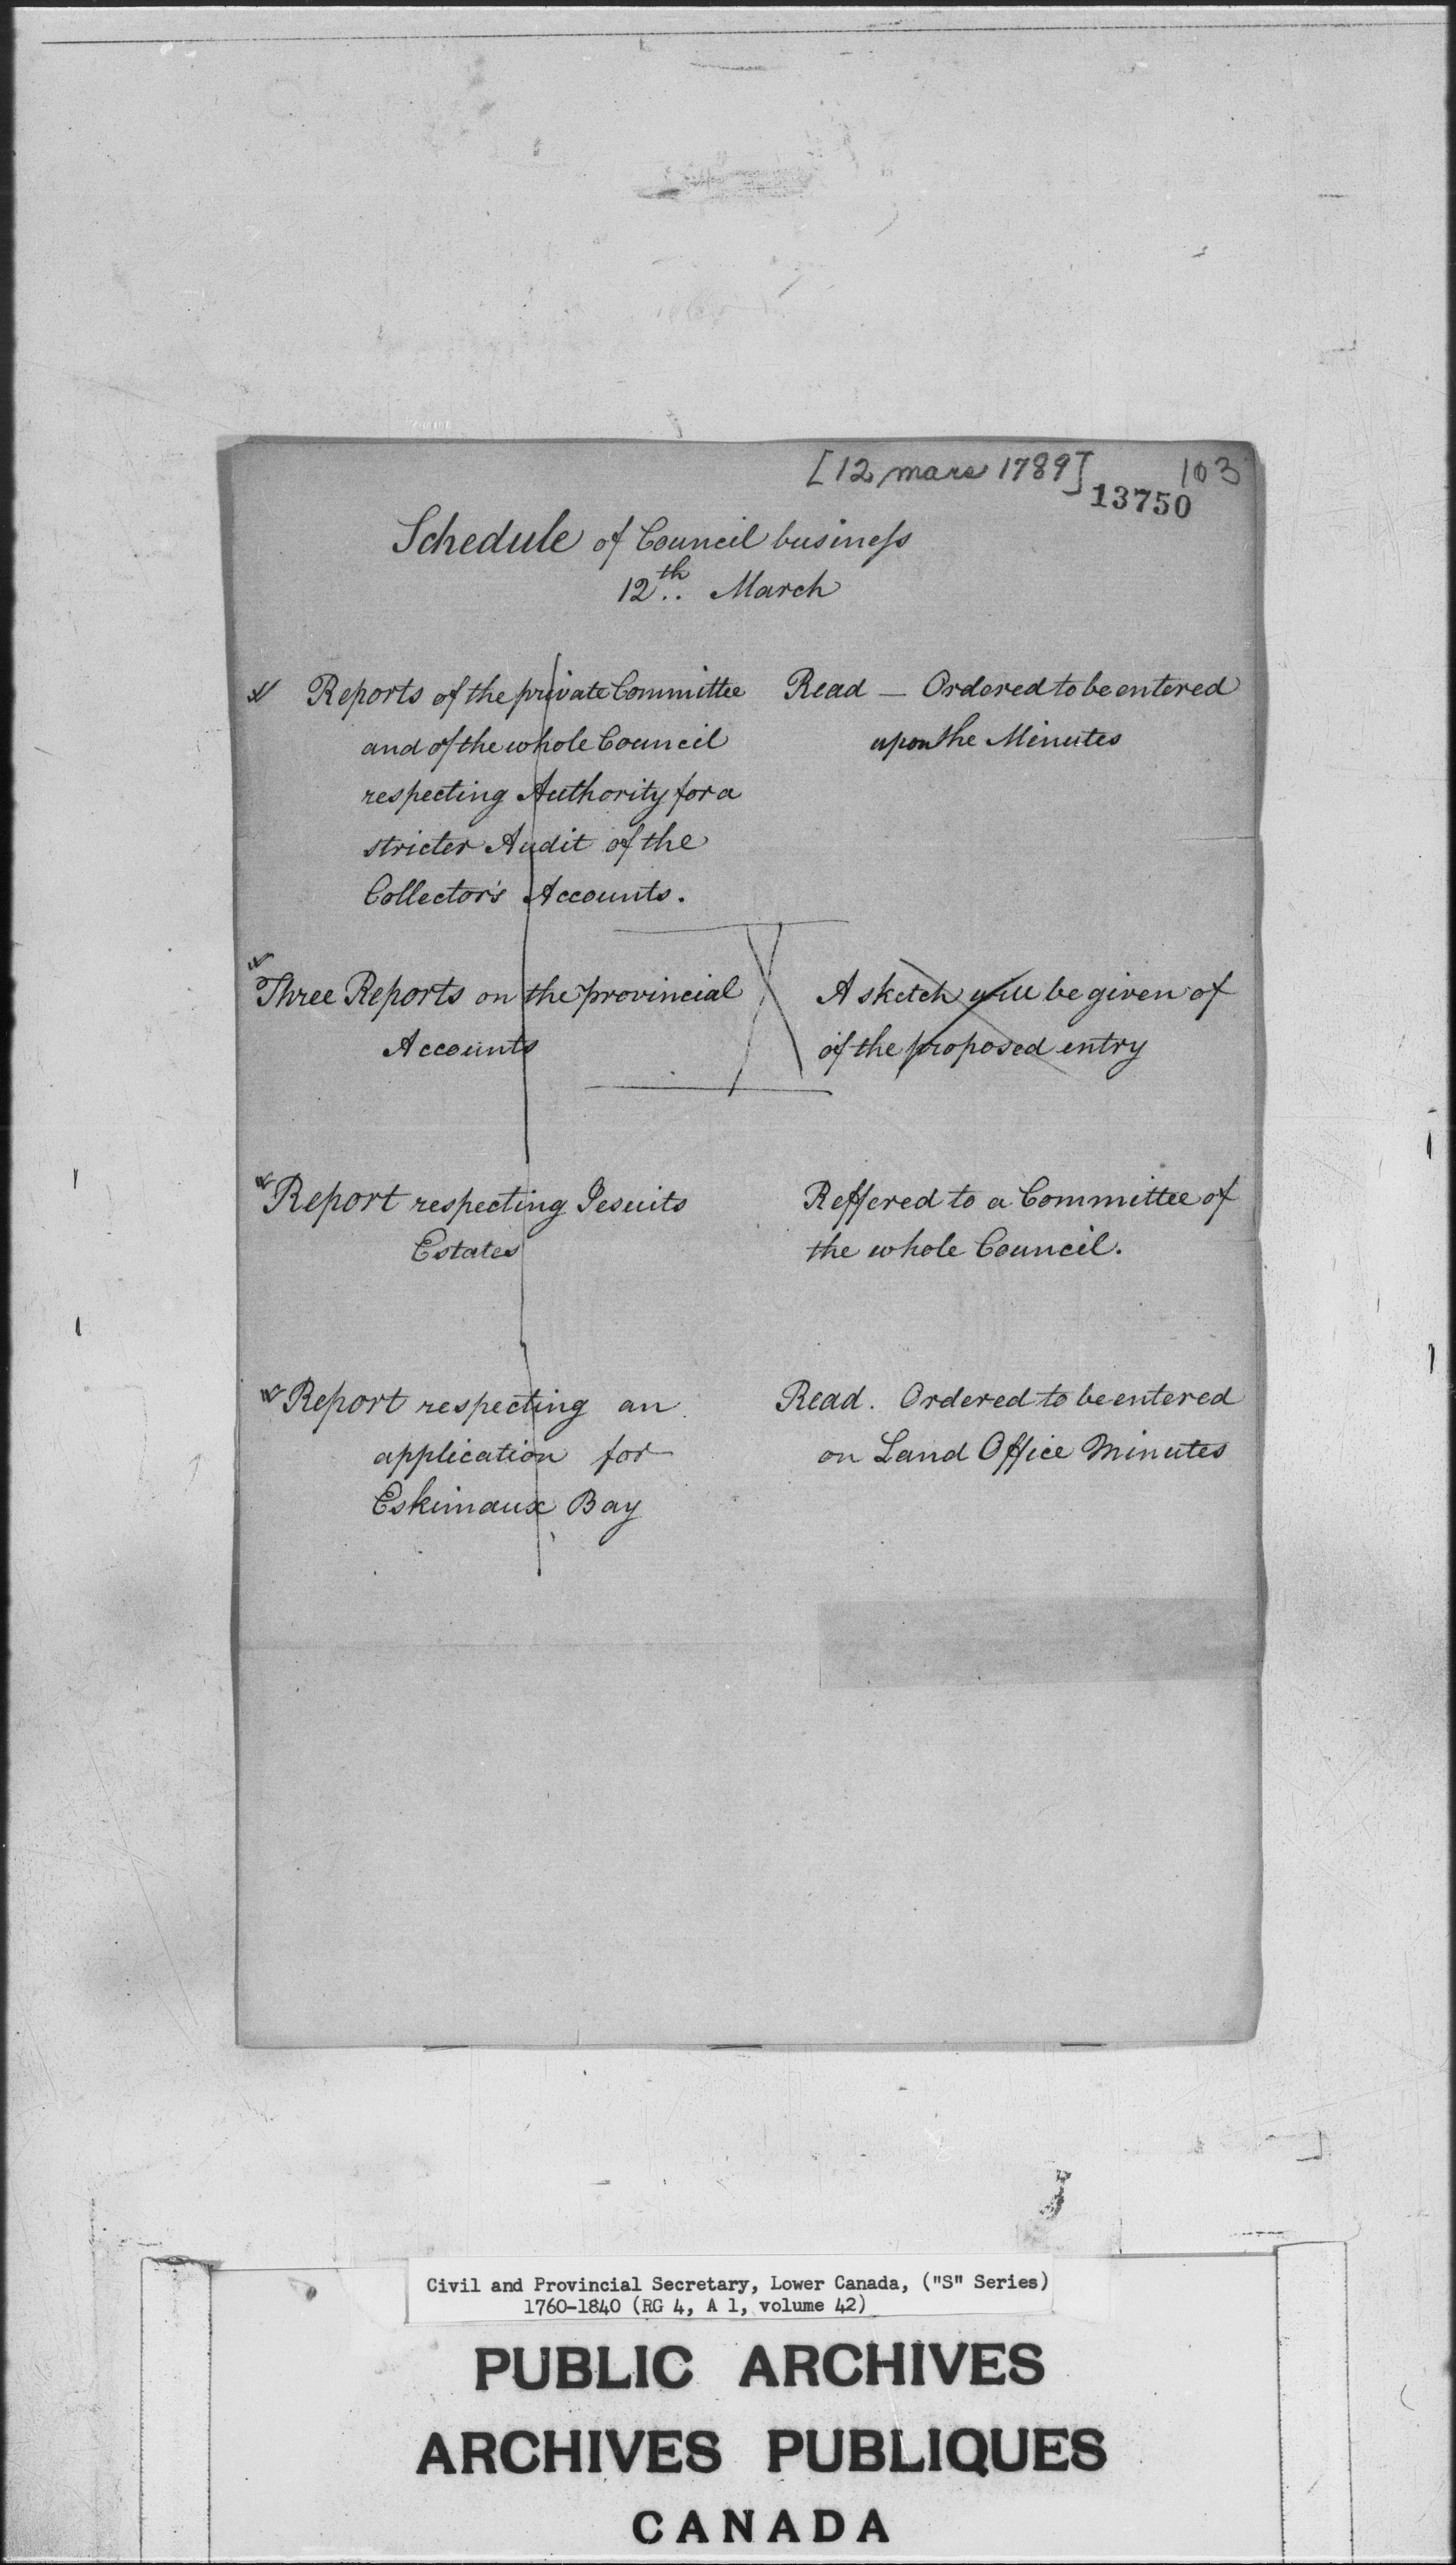 [12 mars 1789] 103
13750
Schedule of Council business
12th.. March
Reports of the private Committee
and of the whole Council
respecting Authority for a
stricter Audit of the
Collector's Accounts.
Read — Ordered to be entered
upon the Minutes
Three Reports on the provincial
Accounts
A sketch will be given of
of the proposed entry
Report respecting Jesuits
Estates
Reffered to a Committee of
the whole Council.
Report respecting an
application for
Eskimaux Bay
Read. Ordered to be entered
on Land Office Minutes
Civil and Provincial Secretary, Lower Canada, ("S" Series)
1760-1840 (RG 4, A 1, volume 42)
PUBLIC ARCHIVES
ARCHIVES PUBLIQUES
CANADA